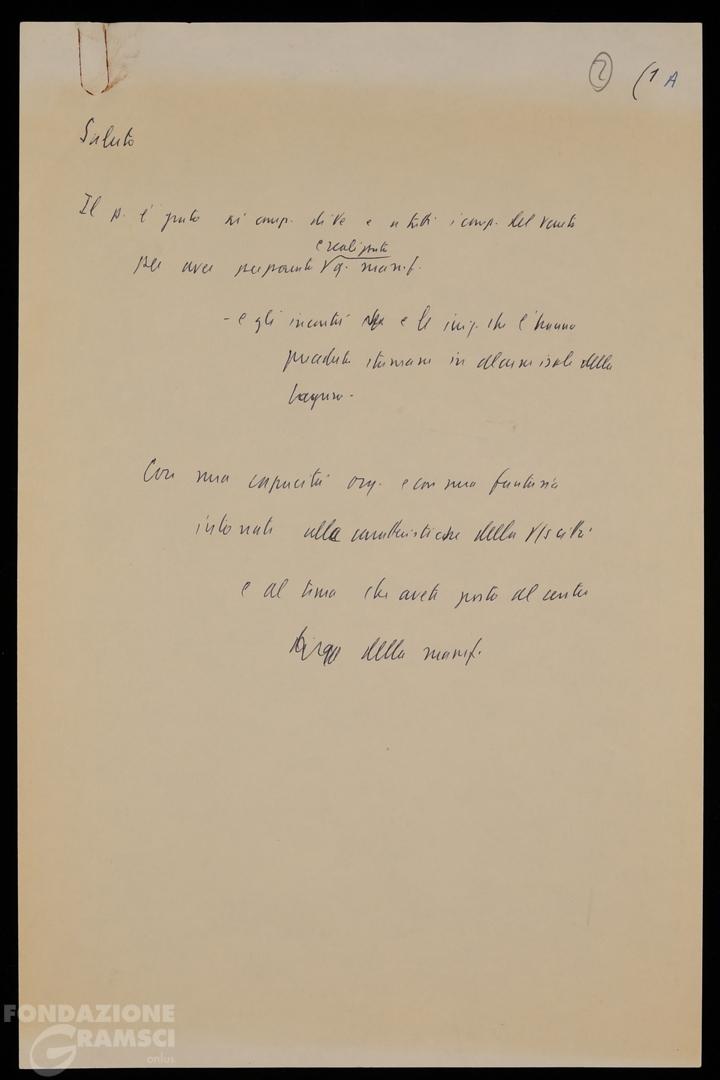 2 (1 A
Saluto
Il p. è grato ai comp. di Ve e a tutti i comp. del Veneto
e realizzato
per aver preparato q. manif.
- e gli incontri e le iniz. che l'hanno
preceduta stamane in alcune isole della
laguna.
Con una capacità org. e con una fantasia
intonati alle caratteristiche della V/s città
e al tema che avete posto al centro
della manif.
FONDAZIONE
GRAMSCI
onlus